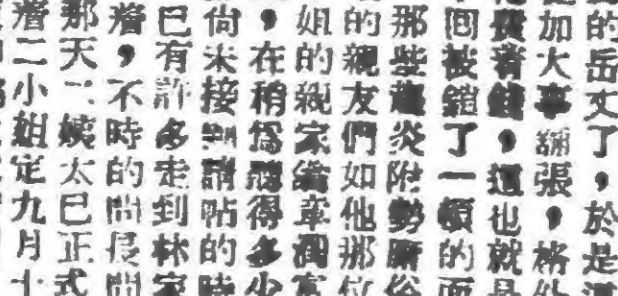 的岳丈了，於是
加大事舖張，格外
費着錢，這也就是
囘被鎧了一頓的面
那些趨炎附勢
的親友們如他那位
姐的親家
，在稍爲得多少
尙未接到請帖的時
已有許多走到林家
着，不時的問長問
那天二姨太已正式
着二小姐定九月十